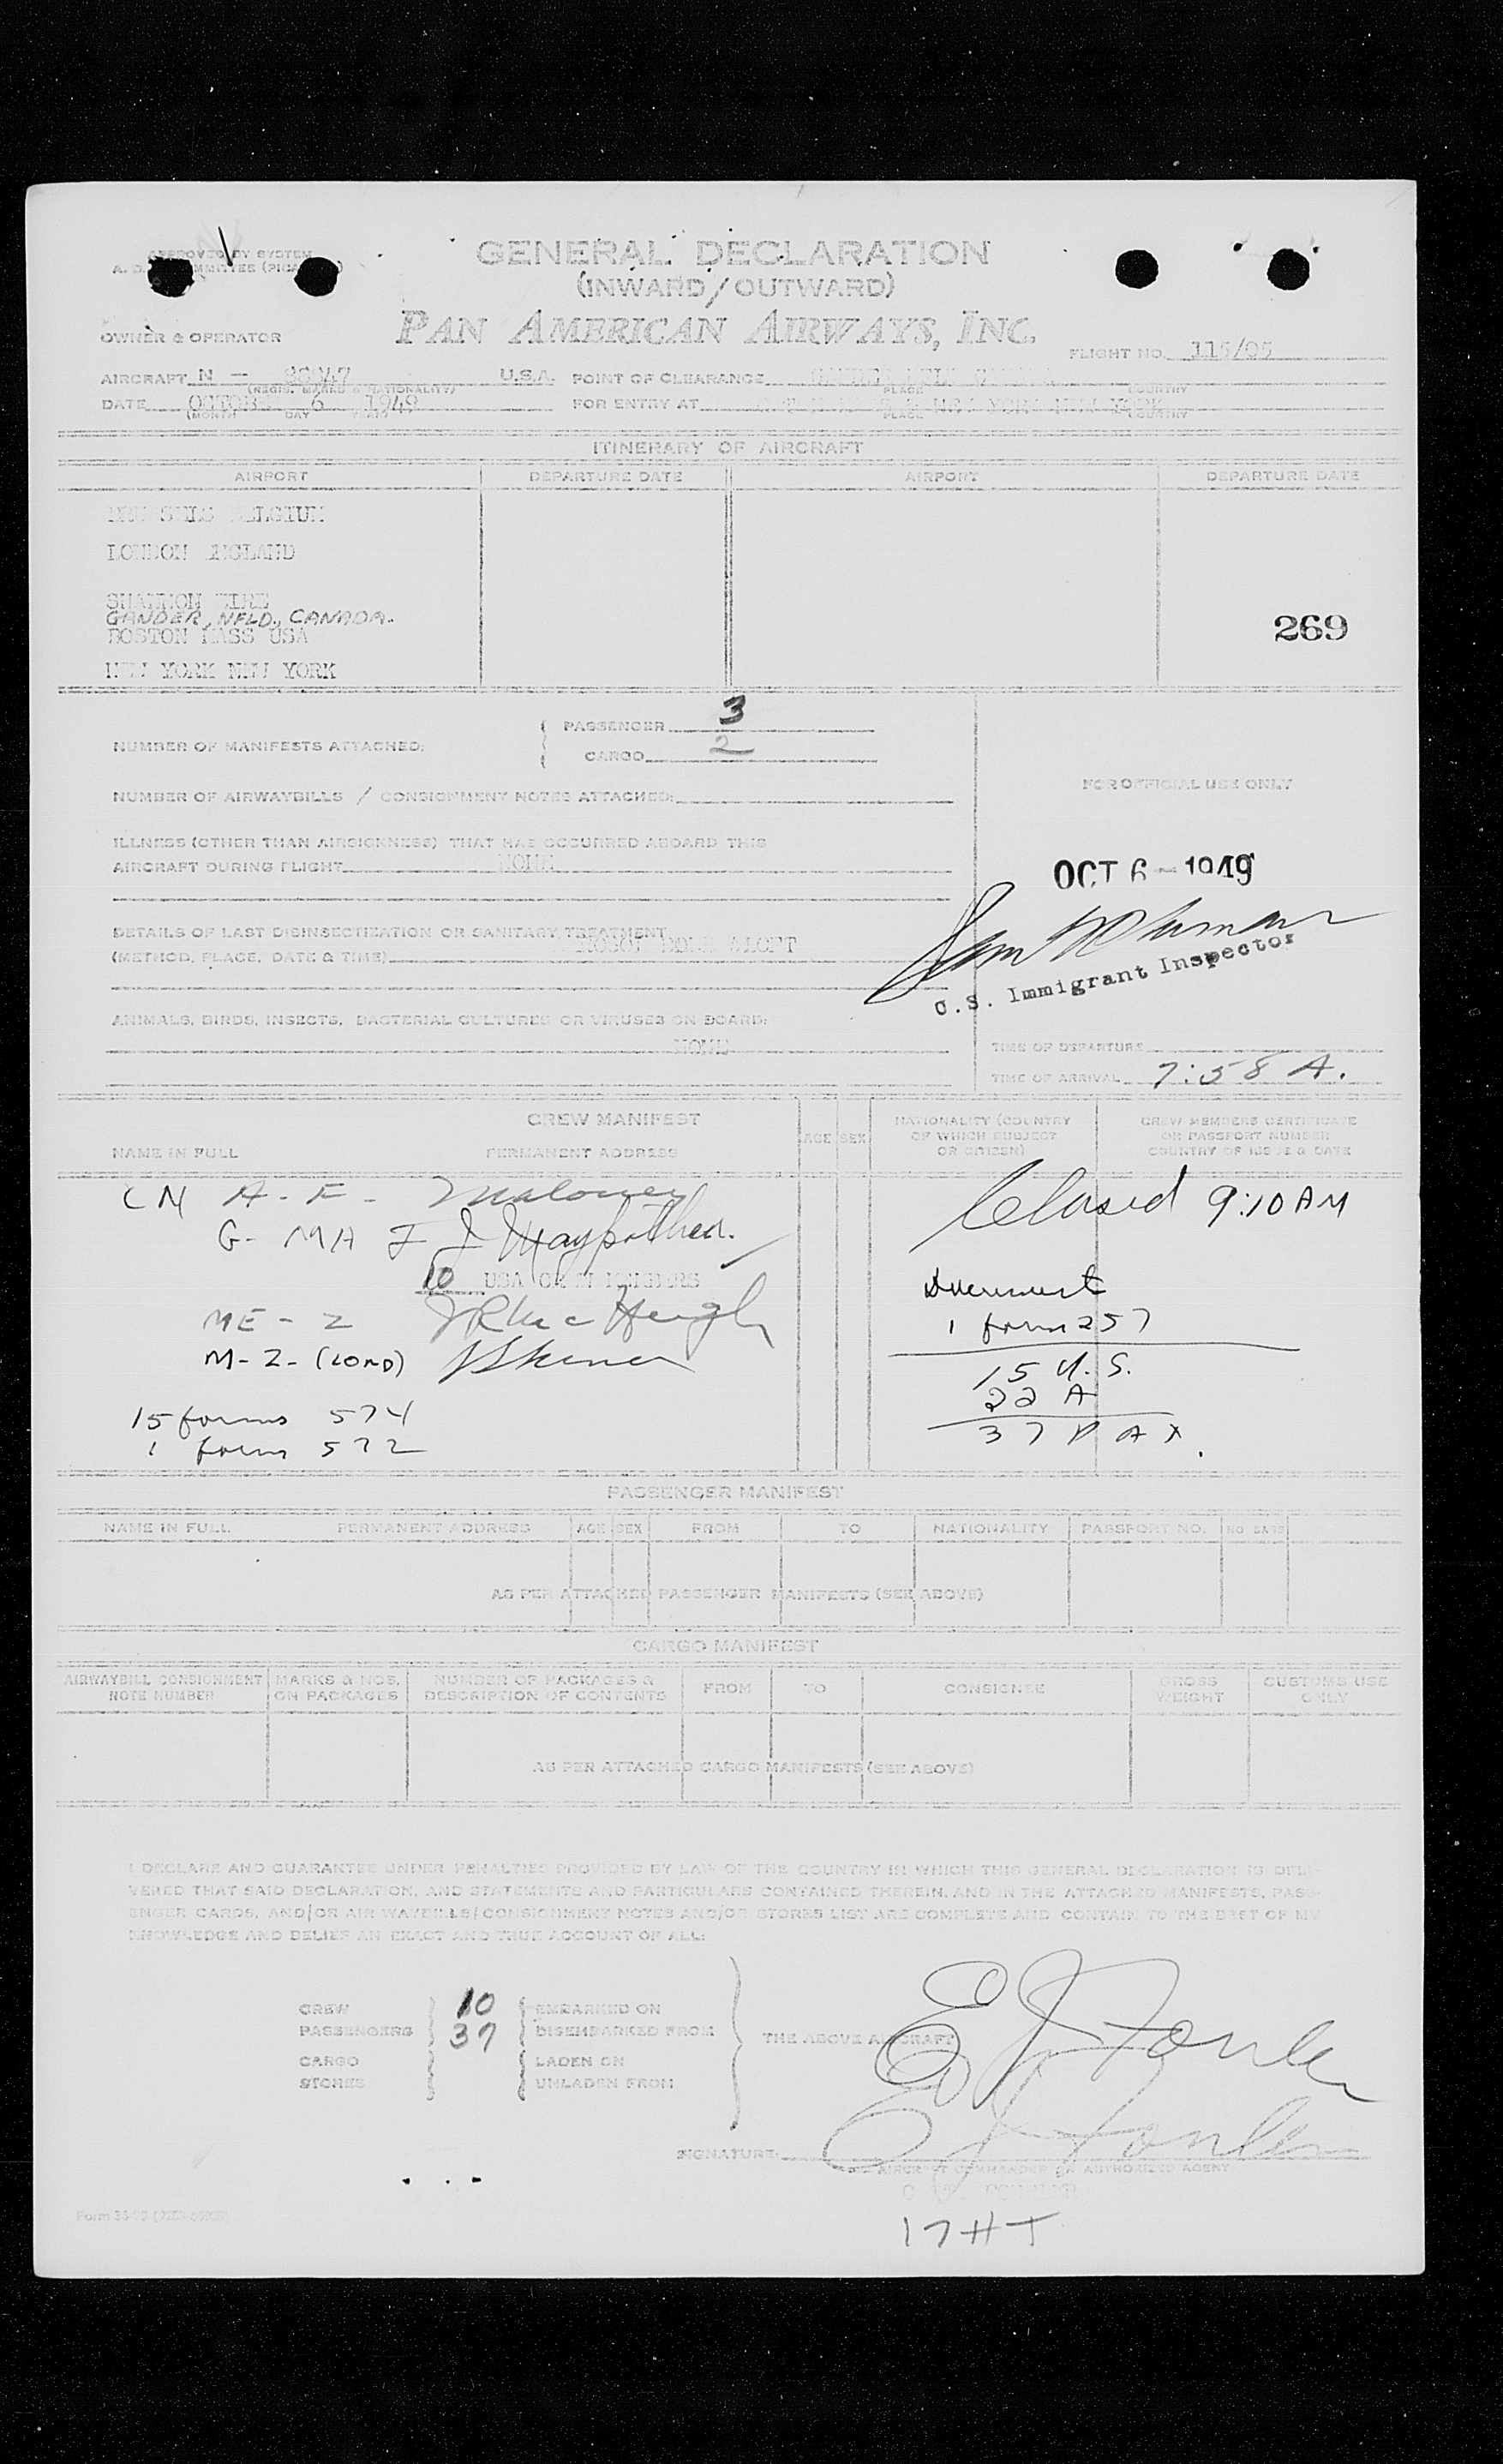 GENERAL DECLARATION
(INWARD/OUTWARD)
PAN AMERICAN AIRWAYS, INC.
OWNER & OPERATOR
FLIGHT NO. 115/05
AIRCRAFT N - U.S.A. POINT OF CLEARANCE
(REGIS. MARKS & NATIONALITY) PLACE COUNTRY
DATE 6 1949 FOR ENTRY AT NEW YORK NEW YORK
(MONTH DAY YEAR) PLACE COUNTRY
ITINERARY OF AIRCRAFT
AIRPORT DEPARTURE DATE AIRPORT DEPARTURE DATE
LONDON ENGLAND
SHANNON EIRE
GANDER, NFLD., CANADA.
BOSTON MASS USA
269
NEW YORK NEW YORK
NUMBER OF MANIFESTS ATTACHED:
PASSENGER 3
CARGO 2
FOR OFFICIAL USE ONLY
NUMBER OF AIRWAYBILLS / CONSIGNMENT NOTES ATTACHED:
ILLNESS (OTHER THAN AIRSICKNESS) THAT HAS OCCURRED ABOARD THIS
AIRCRAFT DURING FLIGHT NONE
OCT 6 - 1949
DETAILS OF LAST DISINSECTIZATION OR SANITARY TREATMENT
(METHOD, PLACE, DATE & TIME) ALOFT
U.S. Immigrant Inspector
ANIMALS, BIRDS, INSECTS, BACTERIAL CULTURES OR VIRUSES ON BOARD:
NONE
TIME OF DEPARTURE
TIME OF ARRIVAL 7:58 A.
CREW MANIFEST
NAME IN FULL PERMANENT ADDRESS AGE SEX NATIONALITY (COUNTRY OF WHICH SUBJECT OR CITIZEN) CREW MEMBERS CERTIFICATE OR PASSPORT NUMBER COUNTRY OF ISSUE & DATE
CM A. F. Maloney
Closed 9:10 AM
G- MA F J
10 USA CREW MEMBERS
1 form 257
ME - 2
M-2-(LOND)
15 U.S.
22 A
37 PAX.
15 forms 574
1 form 572
PASSENGER MANIFEST
NAME IN FULL PERMANENT ADDRESS AGE SEX FROM TO NATIONALITY PASSPORT NO.
AS PER ATTACHED PASSENGER MANIFESTS (SEE ABOVE)
CARGO MANIFEST
AIRWAYBILL CONSIGNMENT NOTE NUMBER MARKS & NOS. ON PACKAGES NUMBER OF PACKAGES & DESCRIPTION OF CONTENTS FROM TO CONSIGNEE GROSS WEIGHT CUSTOMS USE ONLY
AS PER ATTACHED CARGO MANIFESTS (SEE ABOVE)
I DECLARE AND GUARANTEE UNDER PENALTIES PROVIDED BY LAW OF THE COUNTRY IN WHICH THIS GENERAL DECLARATION IS DELI-
VERED THAT SAID DECLARATION, AND STATEMENTS AND PARTICULARS CONTAINED THEREIN, AND IN THE ATTACHED MANIFESTS, PASS-
ENGER CARDS, AND/OR AIR WAYBILLS/CONSIGNMENT NOTES AND/OR STORES LIST ARE COMPLETE AND CONTAIN TO THE BEST OF MY
KNOWLEDGE AND BELIEF AN EXACT AND TRUE ACCOUNT OF ALL:
CREW 10 EMBARKED ON
PASSENGERS 37 DISEMBARKED FROM
THE ABOVE AIRCRAFT
CARGO LADEN ON
STORES UNLADEN FROM
SIGNATURE:
AIRCRAFT COMMANDER OR AUTHORIZED AGENT
17HT